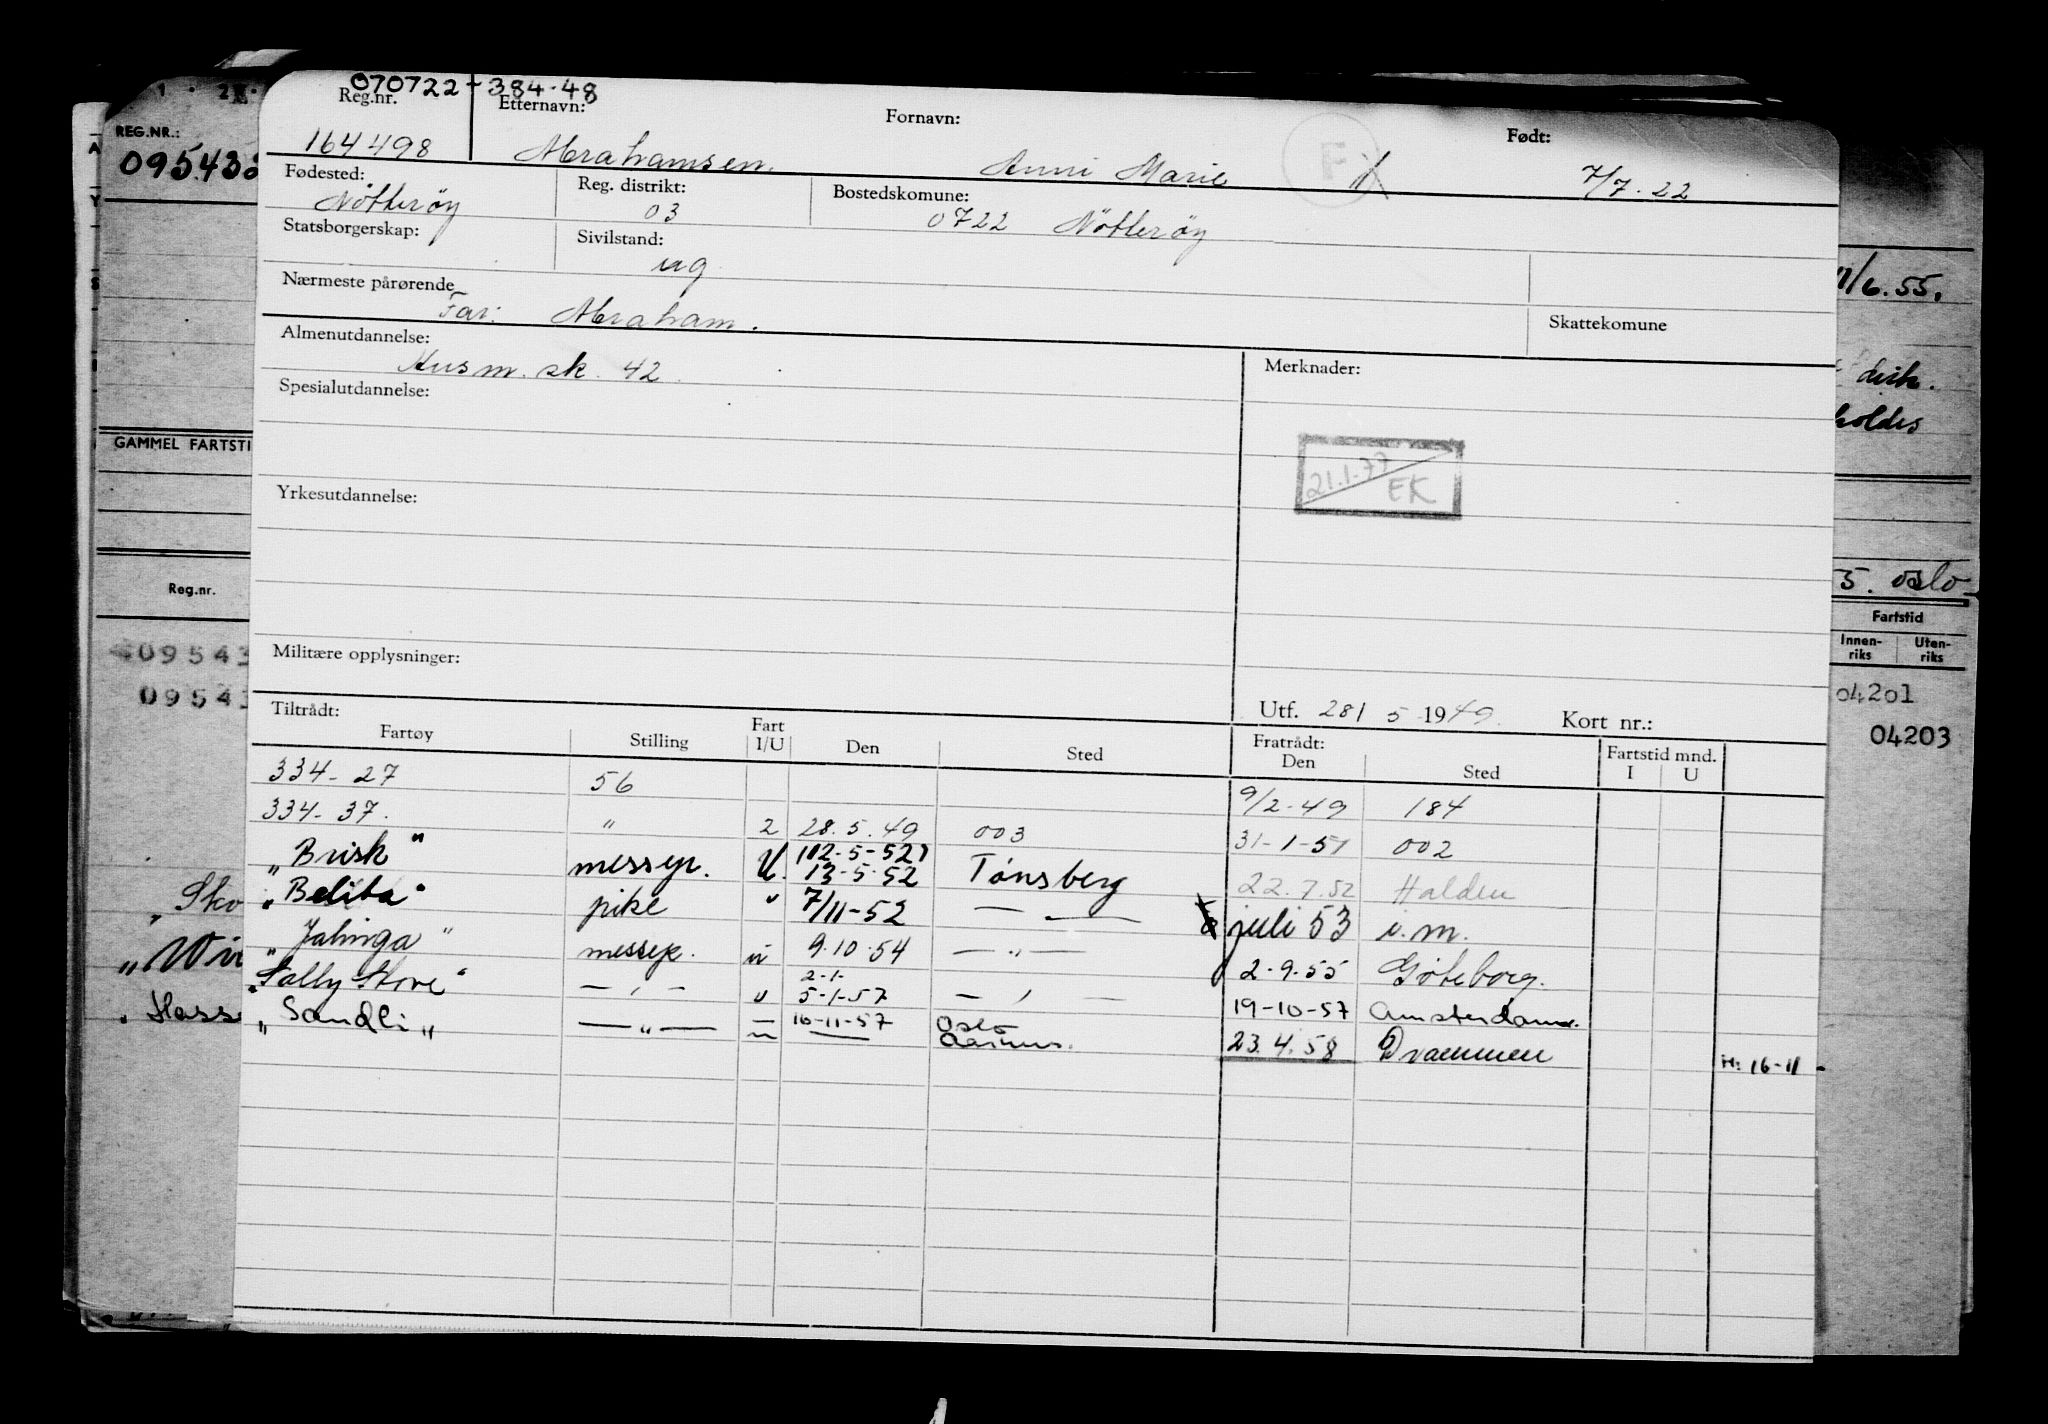 070722-384-48
Reg.nr. Etternavn: Fornavn: Født:
164498 Abrahamsen Anni Marie F 7/7.22
Fødested: Reg. distrikt: Bostedskomune:
Nötteröy 03 0722 Nötteröy
Statsborgerskap: Sivilstand:
ug
Nærmeste pårørende
Far: Abraham.
Skattekomune
Almenutdannelse: Merknader:
Husm. sk. 42
Spesialutdannelse:
21.1.77 EK
Yrkesutdannelse:
Militære opplysninger:
Utf. 28/5 1949. Kort nr.:
Tiltrådt: Fratrådt: Fartstid mnd.
Fartøy Stilling Fart I/U Den Sted Den Sted I U
334-27 56 9/2-49 184
334-37. " 2 28.5.49 003 31-1-51 002
"Brisk" messep. U. (12-5-52) 13-5-52 Tønsberg 22.7.52 Halden
"Belita" pike " 7/11-52 — " — juli 53 i.m.
"Jalinga" messep. u 9.10.54 — " — 2-9.55 Göteborg.
"Sally Stove" — " — u 2-1- 5-1-57 — " — 19-10-57 Amsterdam.
"Sandli" — " — — " 16-11-57 — Oslo Aarhus. 23.4.58 Drammen H: 16-11-
REG.NR.:
095438
GAMMEL FARTSTI
Reg.nr.
09543
09543
"Sko
"Wi
"Hass
11/6.55.
distr.
holdes
5. oslo
Fartstid
Innen-riks Uten-riks
04201
04203